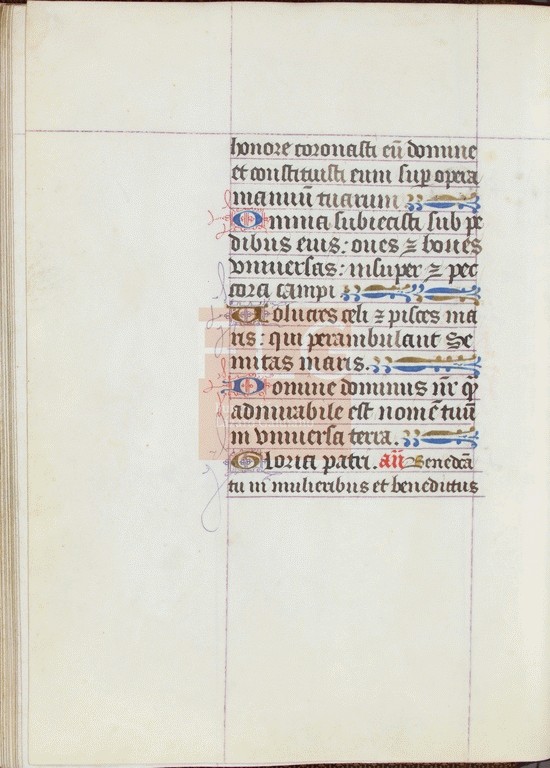 honore coronasti eū domine
et constituisti eum sup opera
manuū tuarum
Omnia subiecisti sub pe
dibus eius: oues ⁊ boues
vniuersas: insuper ⁊ pec
cora campi
Uolucres celi ⁊ pisces ma
ris: qui perambulant se
mitas maris.
Domine dominus nr̄ qͣ
admirabile est nomē tuū
in vniuersa terra.
Gloria patri. añ Benedca
tu in mulieribus et benedictus